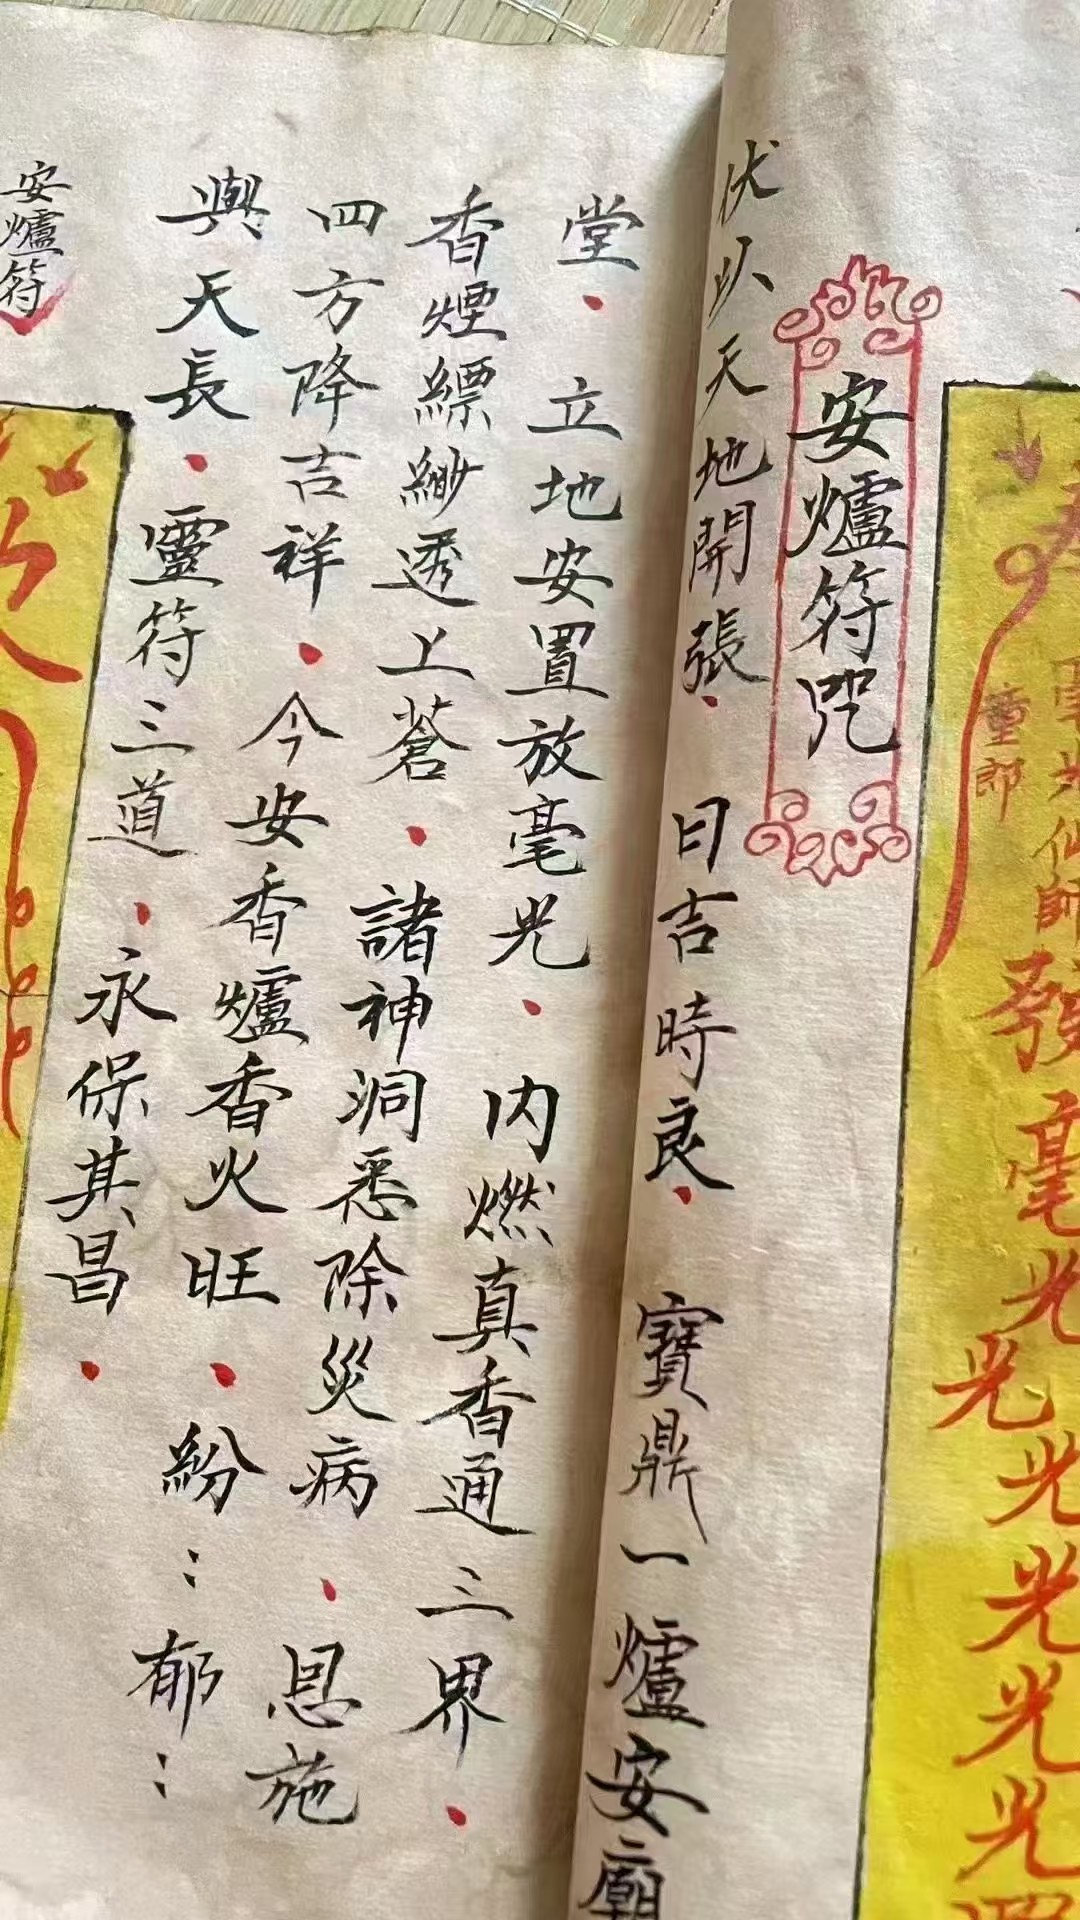 毫光仙師
童郎
發毫光光光光光光
安爐符咒
伏以天地開張．日吉時良．寶鼎一爐安廟
堂．立地安置放毫光．內燃真香通三界．
香煙縹緲透上蒼．諸神洞悉除災病．恩施
四方降吉祥．今安香爐香火旺．紛：郁：
與天長．靈符三道．永保其昌．
安爐符